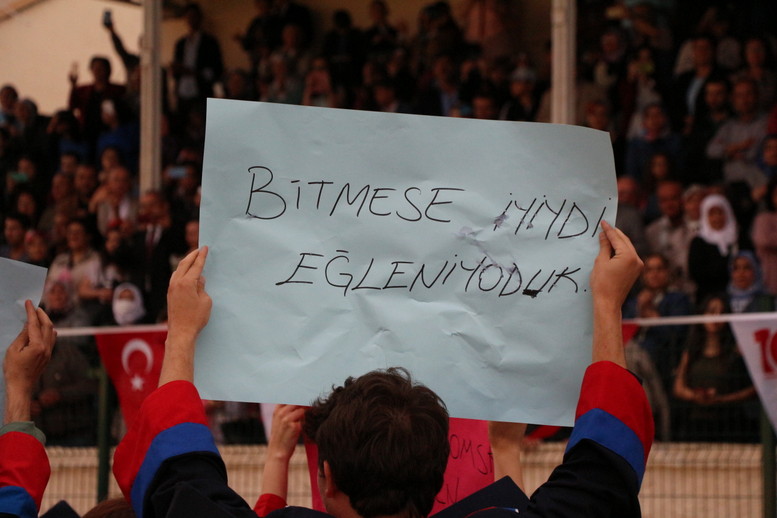 BİTMESE İYİYDİ
EĞLENİYODUK.